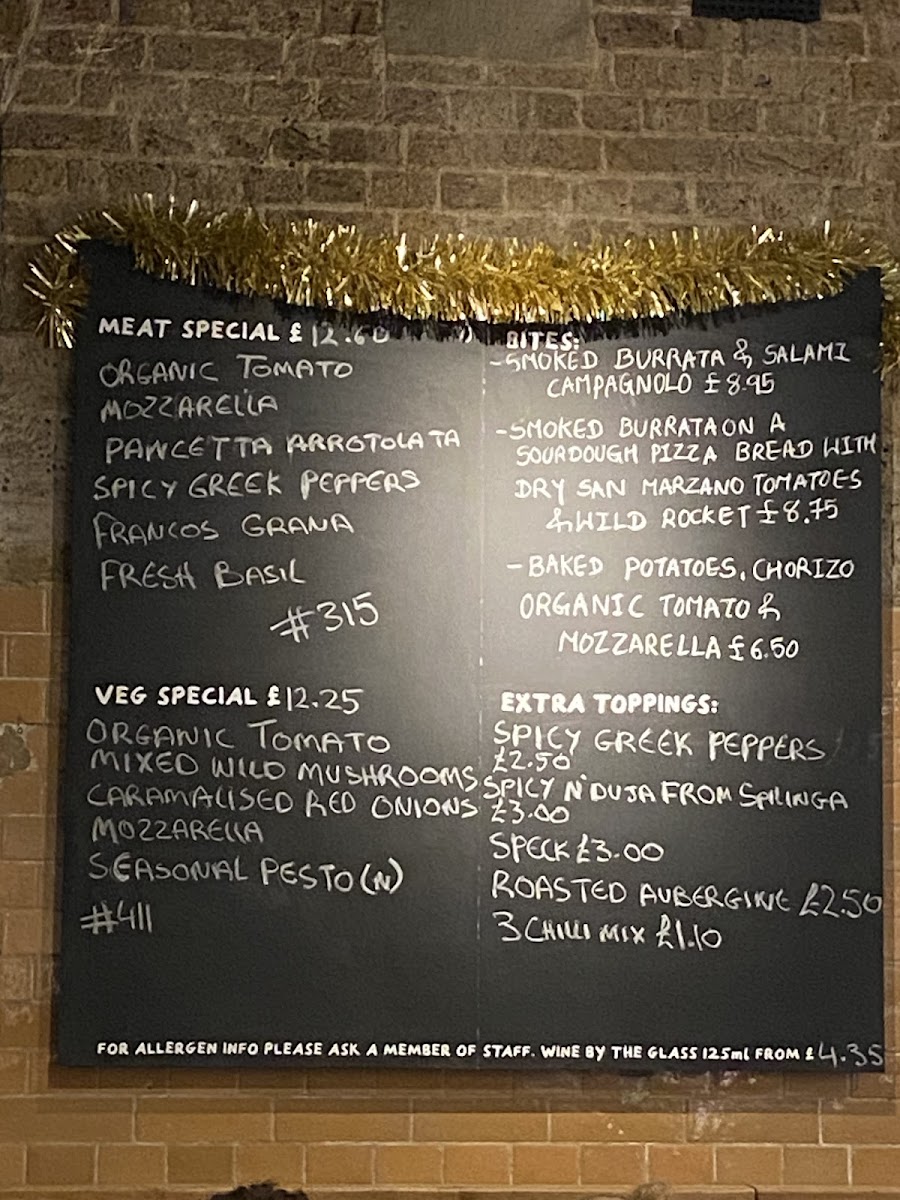 MEAT SPECIAL £12.60
ORGANIC TOMATO
MOZZARELLA
PANCETTA ARROTOLATA
SPICY GREEK PEPPERS
FRANCOS GRANA
FRESH BASIL
#315
VEG SPECIAL £12.25
ORGANIC TOMATO
MIXED WILD MUSHROOMS
CARAMALISED RED ONIONS
MOZZARELLA
SEASONAL PESTO (N)
#411
BITES:
-SMOKED BURRATA & SALAMI
CAMPAGNOLO £8.95
-SMOKED BURRATA ON A
SOURDOUGH PIZZA BREAD WITH
DRY SAN MARZANO TOMATOES
& WILD ROCKET £8.75
-BAKED POTATOES, CHORIZO
ORGANIC TOMATO &
MOZZARELLA £6.50
EXTRA TOPPINGS:
SPICY GREEK PEPPERS
£2.50
SPICY N'DUJA FROM SPILINGA
£3.00
SPECK £3.00
ROASTED AUBERGINE £2.50
3 CHILLI MIX £1.10
FOR ALLERGEN INFO PLEASE ASK A MEMBER OF STAFF. WINE BY THE GLASS 125ml FROM £4.35